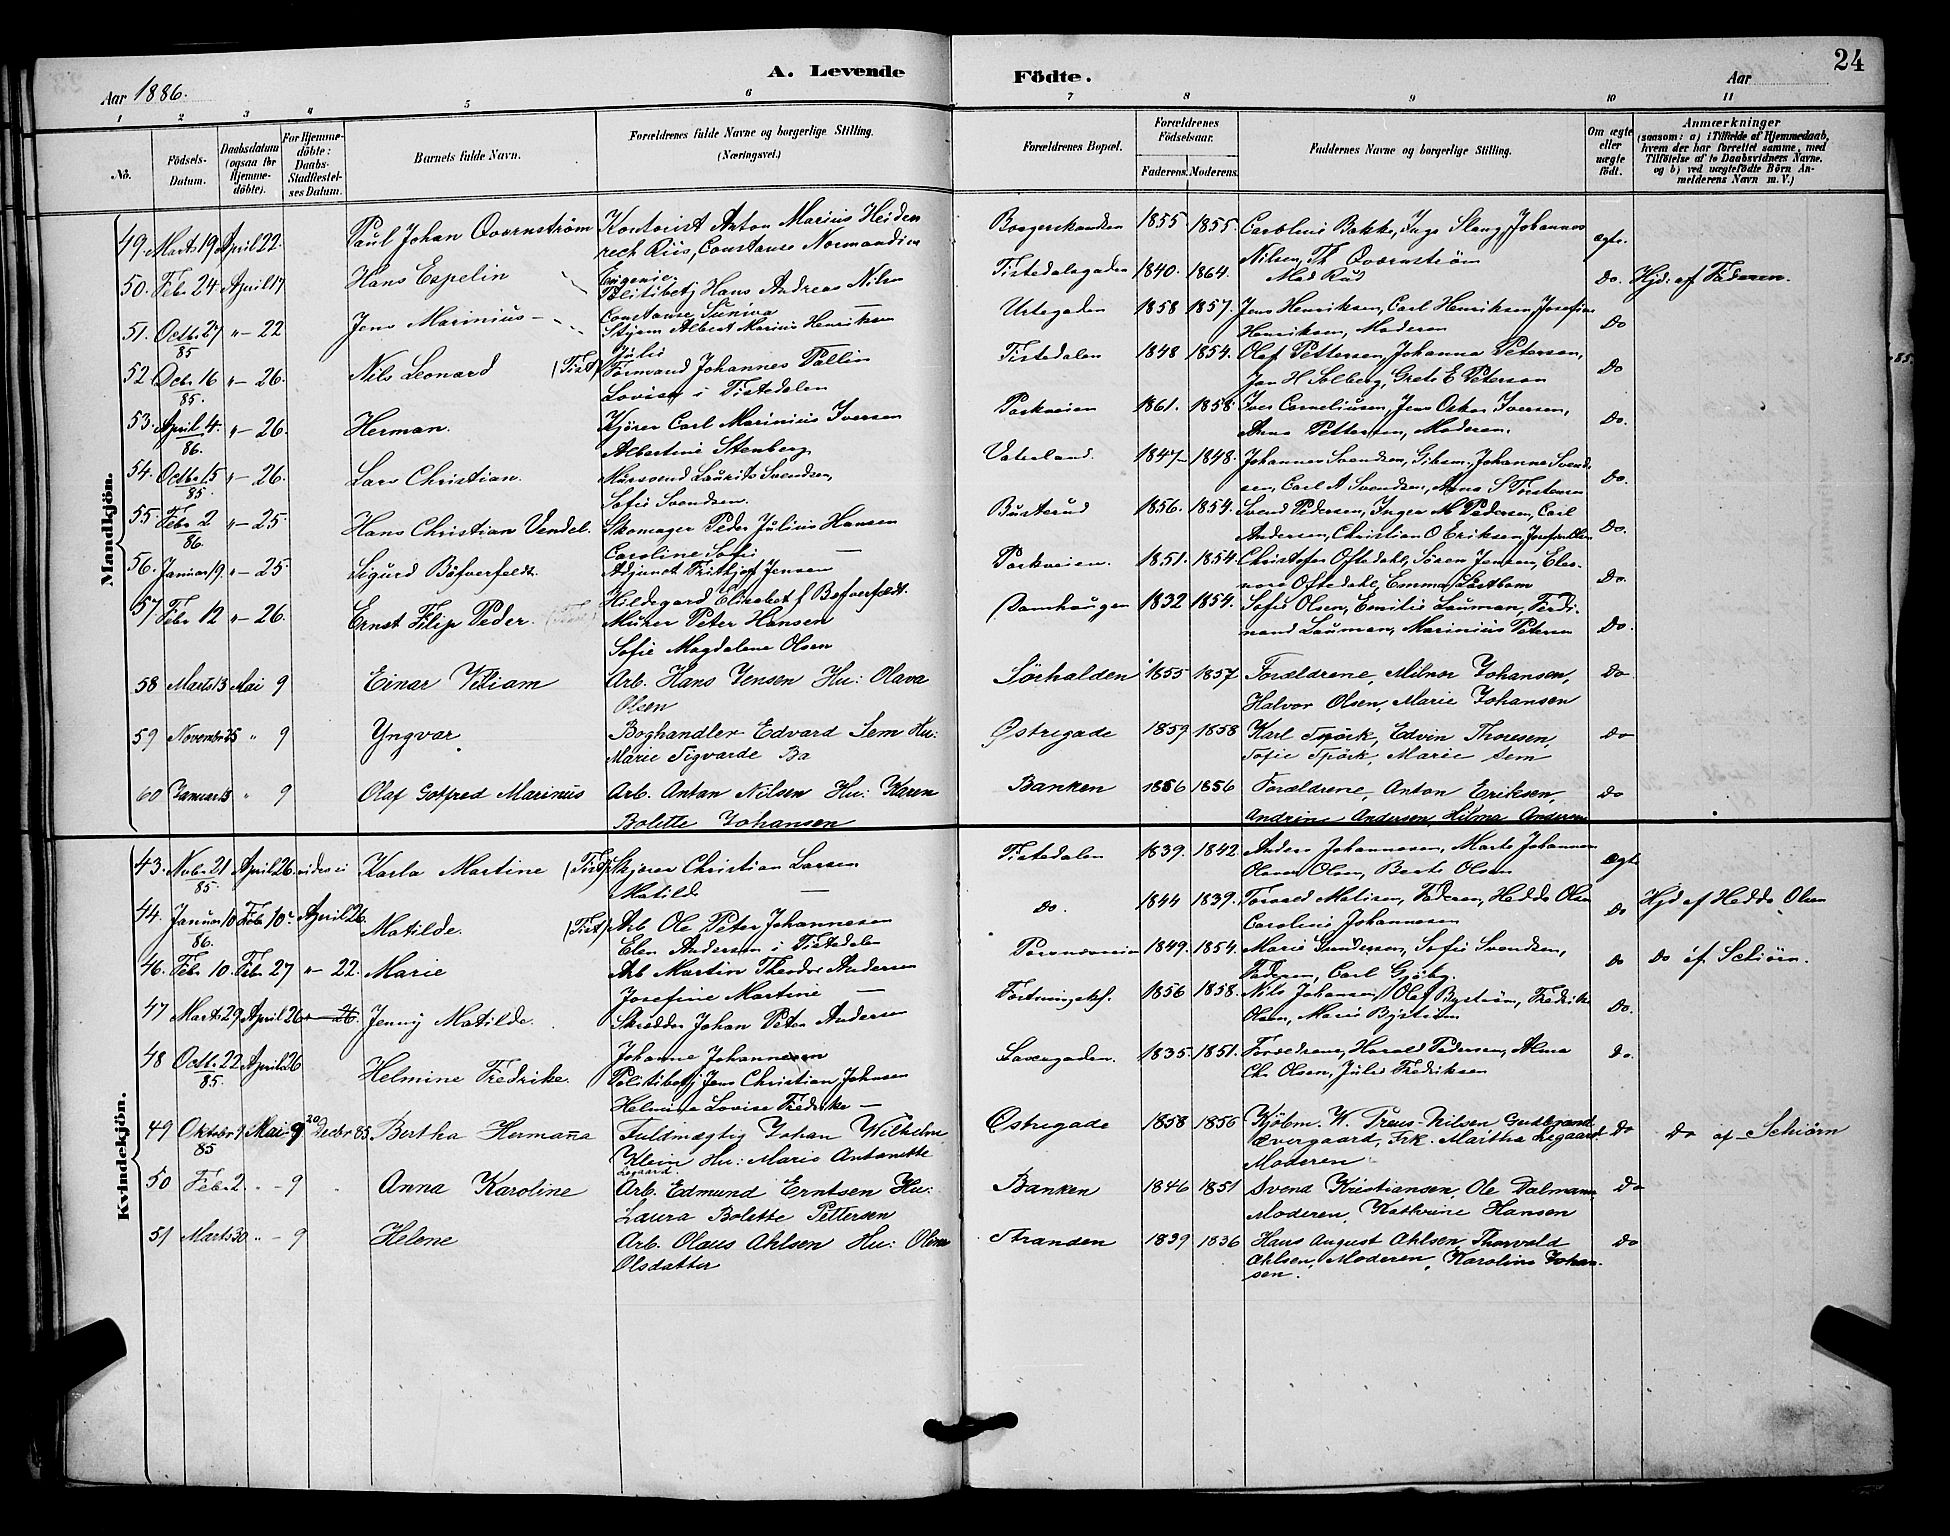 24
A. Levende Födte.
Aar 1886.
Aar
1 2 3 4 5 6 7 8 9 10 11
No.
Födsels-Datum.
Daabsdatum (ogsaa for Hjemmedöbte).
For Hjemmedöbte: Daabs-Stadfæstelses Datum.
Barnets fulde Navn.
Forældrenes fulde Navne og borgerlige Stilling.
(Næringsvei.)
Forældrenes Bopæl.
Forældrenes Födselsaar.
Faderens. Moderens.
Faddernes Navne og borgerlige Stilling.
Om ægte eller uægte födt.
Anmærkninger
(saasom: a) i Tilfælde af Hjemmedaab, hvem der har forrettet samme, med Tilföielse af to Daabsvidners Navne, og b) ved uægtefödte Börn Anmelderens Navn m. V.)
Mandkjön.
49. Marts 19 April 22. Paul Johan Qvernström Kontorist Anton Marius Heiden 1855 1855. Inge Slang, Johannes ægte.
rech Riis, Constance Normandin Nilsen, Th. Qvernström
50. Febr 24 April 17 Hans Espelin Eugenie Tistedalsgaden 1840. 1864. Mad Rud Do. Hjd: af Faderen.
Politibetj Hans Andreas Nilsn
51. Octbr 27 85 " 22 Jens Marinius Constance Suniva Urtegaden 1858 1857. Jens Henriksen, Carl Henriksen, Josefine Do
Styrm Albert Marius Henriksen Henriksen, Moderen
52. Octbr 16 85. " 26. Nils Leonard (Tist) Julie Tistedalen 1848 1854. Olaf Pettersen, Johanna Petersen, Do
Formand Johannes Tallin Jan H Solberg, Grete E Peterson
Lovise i Tistedalen
53. April 4. 86. " 26. Herman. Kjörer Carl Marinius Iversen Parkveien 1861. 1858. Iver Corneliusen, Jens Oskar Iversen, Do.
Albertine Stenberg Anna Pettersen, Moderen.
54. Octbr 15 85. " 26. Lars Christian. Mursvend Laurits Svendsen, Vaterland. 1847 1848. Johannes Svendsen, Johanne Svend Do.
Sofie Svendsen. sen, Carl A Svendsen, Anna S Torstensen
55. Febr 2 86. " 25. Hans Christian Vendel. Skomager Peder Julius Hansen Busterud 1856. 1854. Svend Pedersen, Inger M Pedersen, Carl Do.
Caroline Sofie Andersen, Christian O Eriksen,
56. Januar 19. " 25. Sigurd Bäfverfeldt. Adjunct Frithjof Jensen Parkveien. 1851. 1854. Christofer Oftedahl, Sören Jensen, Eleo Do.
Hildegard Elisabet f Befverfeldt. nore Oftedahl, Emma
57 Febr 12 " 26. Ernst Filip Peder. Murer Peter Hansen Damhaugen 1832 1854. Sofie Olsen, Emilie Lauman, Ferdi Do.
Sofie Magdalene Olsen nand Lauman, Marinius Petersen
58 Marts 13 Mai 9 Einar Viliam Arb. Hans Jensen Hu: Olava Sörhalden 1855 1857 Forældrene, Milnor Johansen, Do
Olsen Halvor Olsen, Marie Johansen
59 November 25 " 9 Yngvar Boghandler Edvard Sem Hu: Østregade 1859 1858 Karl Spörk, Edvin Thoresen, Do
Marie Sigvarde Ba Sofie Spörk, Marie Sem
60 Januar 13 " 9 Olaf Gotfred Marinus Arb. Antan Nilsen Hu: Karen Banken 1856 1856 Forældrene, Anton Eriksen, Do
Bolette Johansen Andrine Andersen, Hilma Andersen
Kvindekjön.
43. Nobr 21 85 April 26 Karla Martine (Tist) Kjörer Christian Larsen Tistedalen 1839. 1842 Anders Johannesen, Marte Johannesen ægte
Matilde Olaves Olsen, Berte Olsen
44. Januar 10 86. Feb 10 April 26. Matilde. (Tist) Arb Ole Peter Johannesen Do. 1844 1839. Faderen, Hedda Olsen Do Hjd af Hedda Olsen
Elen Andersen i Tistedalen Caroline Johannesen
46. Febr 10. Febr 27 " 22. Marie Arb Martin Theodor Andersen 1849. 1854. Marie Gundersen, Sofie Svendsen, Do Do af Schiörn.
Josefine Martine Faderen, Carl Gjöby.
47 Marts 29 April 26 " 26. Jenny Matilde. Skrædder Johan Peter Andersen 1856 1858. Nils Johansen, Olaf Byström, Fredrik Do.
Johanne Johannesen Olsen, Marie Byström
48 Octbr 22 85. April 26 Helmine Fredrike. Politibetj Jens Christian Johnsen 1835. 1851. Forældrene, Harald Pedersen, Alma Do.
Helmine Lovise Fredrike Chr Olsen, Julie Fredriksen
49 Oktober 9 85 Mai 9 20 Decbr 85 Bertha Hermana Fuldmægtig Johan Wilhelm Østregade 1858 1856 Kjöbm. W. Preus-Nilsen, Gudbrand Do Do af Schiörn
Klein Hu: Marie Antonette Frk. Martha Legaard
Legaard. Moderen
50 Febr. 2 " 9 Anna Karoline Arb. Edmund Erntsen Hu: Banken 1846 1851 Svend Kristiansen, Ole Dalmann Do
Laura Bolette Pettersen Moderen, Kathrine Hansen
51 Marts 30 " 9 Helene Arb. Olaus Ahlsen Hu: Olene Stranden 1839 1836 Hans August Ahlsen, Thorvald Do
Olsdatter Ahlsen, Moderen, Karoline Johan
sen.